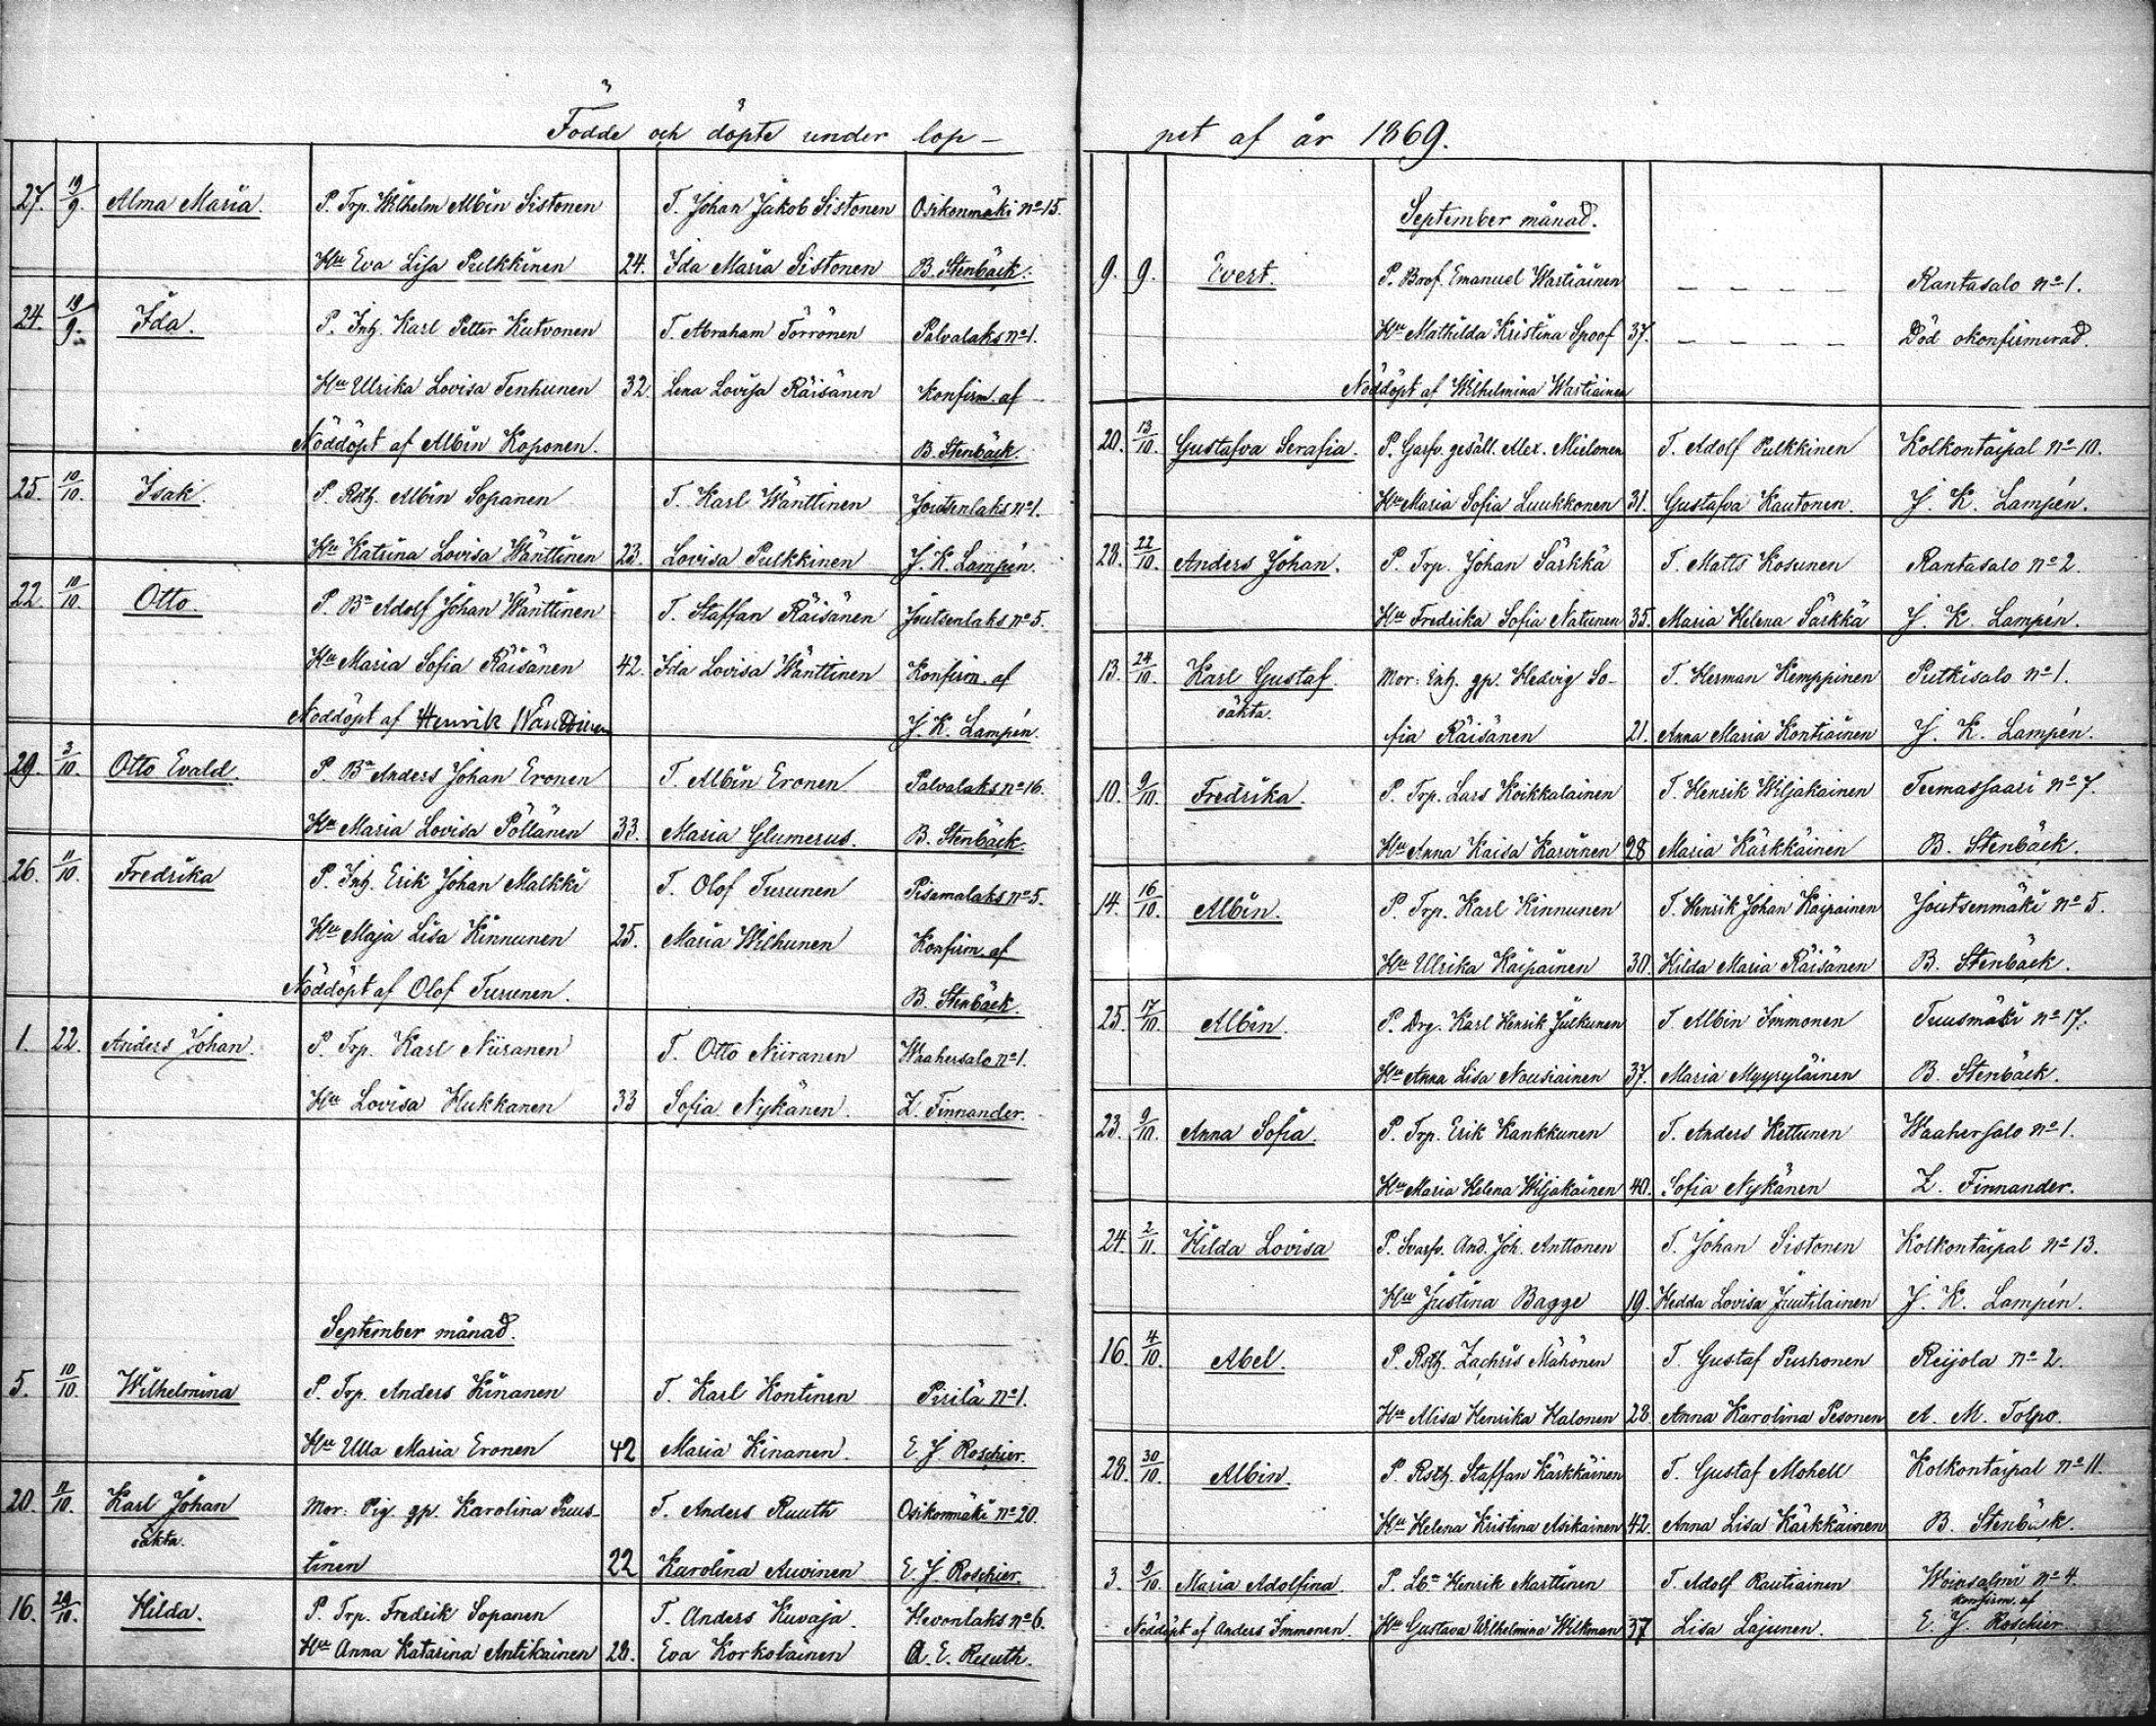 Födde och döpte under lop-
27. 19/9. Alma Maria. P. Trp. Wilhelm Albin Sistonen T. Johan Jakob Sistonen Osikonmäki No 15.
Hu Eva Lisa Pulkkinen 24. Ida Maria Sistonen B. Stenbäck.
24. 19/9. Ida. P. Inh. Karl Petter Kutvonen T. Abraham Törrönen Palvalaks No 1.
Hu Ulrika Lovisa Tenhunen 32. Lena Lovisa Räisänen Konfirm. af
Nöddöpt af Albin Koponen. B. Stenbäck.
25. 10/10. Isak. P. Rsth. Albin Sopanen T. Karl Wänttinen Joutsenlaks No 1.
Hu Katrina Lovisa Wänttinen 23. Lovisa Pulkkinen J. K. Lampén.
22. 10/10. Otto. P. Bn Adolf Johan Wänttinen T. Staffan Räisänen Joutsenlaks No 5.
Hu Maria Sofia Räisänen 42. Ida Lovisa Wänttinen Konfirm. af
Nöddöpt af Henrik J. K. Lampén.
29. 3/10. Otto Evald. P. Bn Anders Johan Eronen T. Albin Eronen Palvalaks No 16.
Hu Maria Lovisa Pöllänen 33. Maria Glumerus. B. Stenbäck.
26. 11/10. Fredrika P. Inh. Erik Johan Malkki T. Olof Turunen Pisamalaks No 5.
Hu Maja Lisa Kinnunen 25. Maria Wilhunen Konfirm. af
Nöddöpt af Olof Turunen. B. Stenbäck.
1. 22. Anders Johan. P. Trp. Karl Niiranen T. Otto Niiranen Waahersalo No 1.
Hu Lovisa Hukkanen 33 Sofia Nykänen. Z. Finnander.
September månad.
5. 10/10. Wilhelmina P. Trp. Anders Kinanen T. Karl Kontinen Pirilä No 1.
Hu Ulla Maria Eronen 42 Maria Kinanen. E. J. Roschier.
20. 11/10. Karl Johan Mor: Pig. gp. Karolina Puus- T. Anders Ruuth Osikonmäki No 20.
oäkta. tinen 22 Karolina Auvinen E. J. Roschier.
16. 24/10. Hilda. P. Trp. Fredrik Sopanen T. Anders Kuvaja. Hevonlaks No 6.
Hu Anna Katarina Antikainen 28. Eva Korkolainen A. E. Ruuth.
pet af år 1869.
September månad.
9. 9. Evert. P. Brof. Emanuel Wartiainen – – – – Rantasalo No 1.
Hu Mathilda Kristina Spoof 37. – – – – Död okonfirmerad.
Nöddöpt af Wilhelmina Wartiainen
20. 13/10. Gustafva Serafia. P. Garfv. gesäll. Alex. Mielonen T. Adolf Pulkkinen Kolkontaipal No 10.
Hu Maria Sofia Luukkonen 31. Gustafva Kautonen. J. K. Lampén.
28. 22/10. Anders Johan. P. Trp. Johan Särkkä T. Matts Kosunen Rantasalo No 2.
Hu Fredrika Sofia Natunen 35. Maria Helena Särkkä J. K. Lampén.
13. 24/10. Karl Gustaf Mor: Enh. gp. Hedvig So- T. Herman Kemppinen Putkisalo No 1.
oäkta. fia Räisänen 21. Anna Maria Kontiainen J. K. Lampén.
10. 9/10. Fredrika. P. Trp. Lars Koikkalainen T. Henrik Wiljakainen Teemassaari No 7.
Hu Anna Kaisa Karvinen 28 Maria Kärkkäinen B. Stenbäck.
14. 16/10. Albin. P. Trp. Karl Kinnunen T. Henrik Johan Kaipainen Joutsenmäki No 5.
Hu Ulrika Kaipainen 30. Hilda Maria Räisänen B. Stenbäck.
25. 17/10. Albin. P. Drg. Karl Henrik Julkunen T. Albin Immonen Tuusmäki No 17.
Hu Anna Lisa Nousiainen 37. Maria Myyryläinen B. Stenbäck.
23. 9/10. Anna Sofia. P. Trp. Erik Kankkunen T. Anders Kettunen Waahersalo No 1.
Hu Maria Helena Wiljakainen 40. Sofia Nykänen Z. Finnander.
24. 2/11. Hilda Lovisa P. Svarfv. And. Joh. Anttonen T. Johan Sistonen Kolkontaipal No 13.
Hu Justina Bagge 19. Hedda Lovisa Juutilainen J. K. Lampén.
16. 4/10. Abel. P. Rsth. Zachris Mähönen T. Gustaf Purhonen Reijola No 2.
Hu Alisa Henrika Halonen 28. Anna Karolina Pesonen A. M. Tolpo.
28. 30/10. Albin. P. Rsth. Staffan Kärkkäinen T. Gustaf Mohell Kolkontaipal No 11.
Hu Helena Kristina Asikainen 42. Anna Lisa Kärkkäinen B. Stenbäck.
3. 3/10. Maria Adolfina P. Lbn Henrik Marttinen T. Adolf Rautiainen Woinsalmi No 4.
konfirm. af
Nöddöpt af Anders Immonen. Hu Gustava Wilhelmina Wilkman 37 Lisa Lajunen. E. J. Roschier